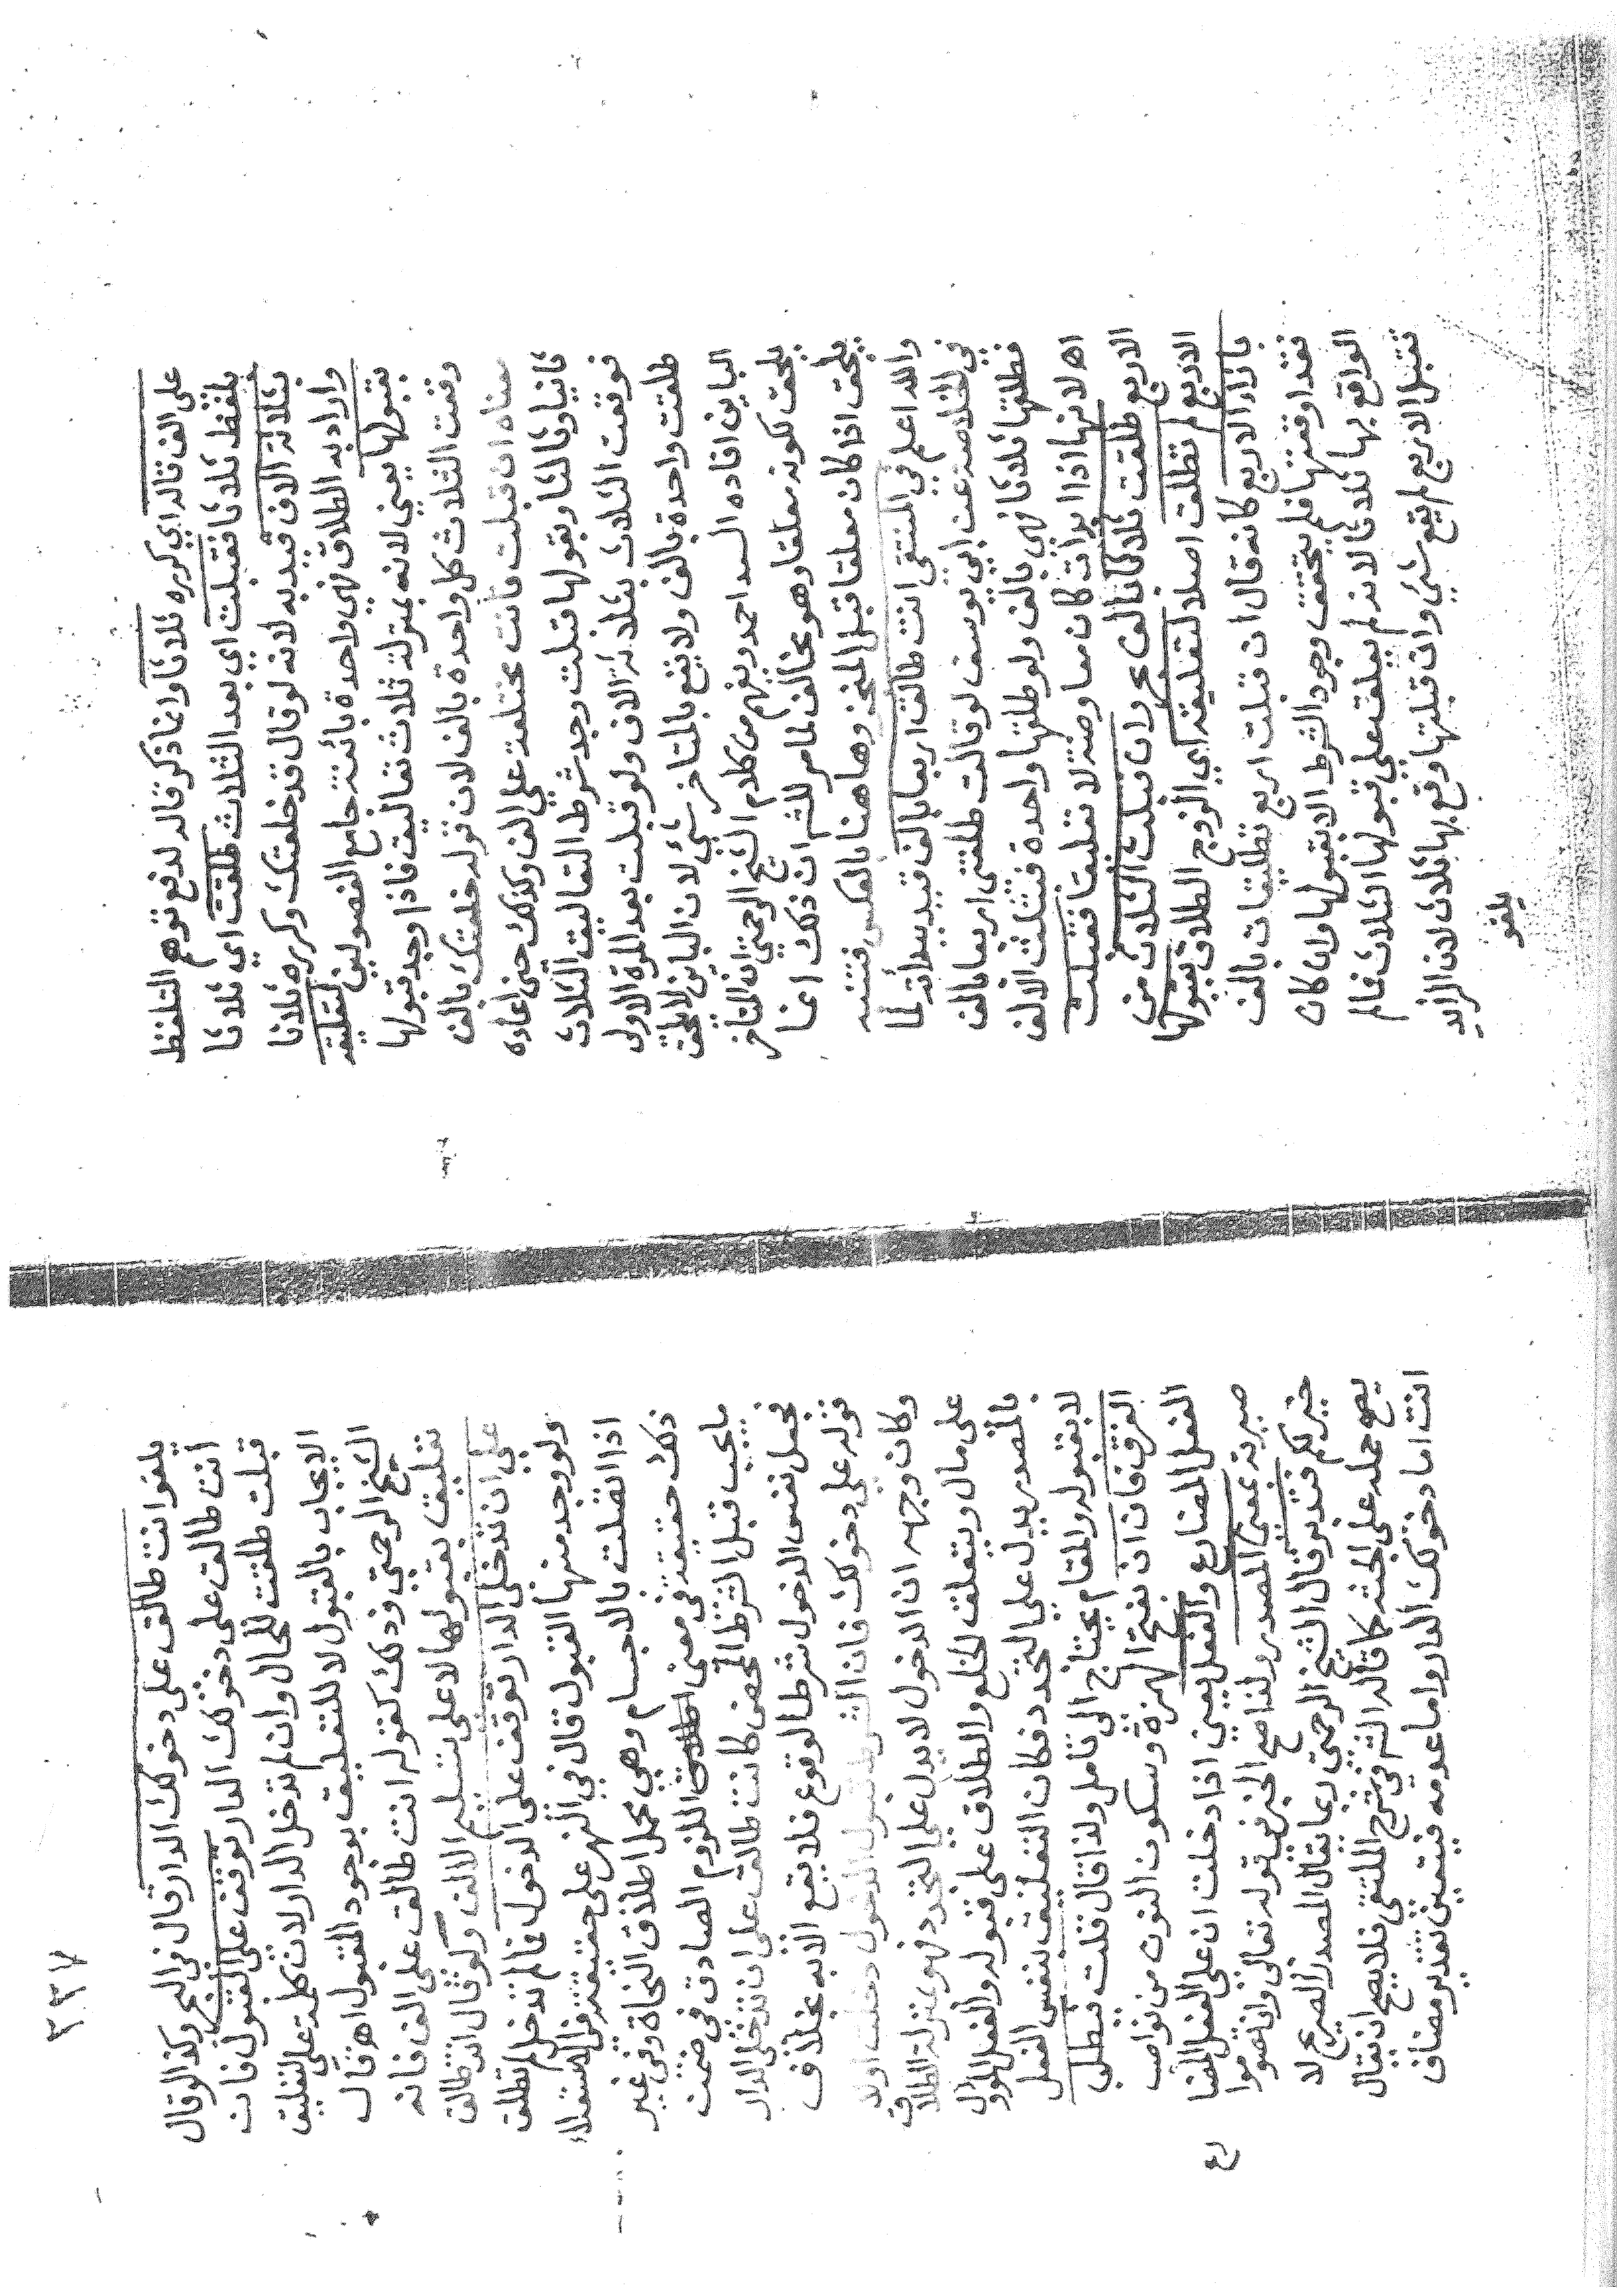 على الف قالداي كرره ثلاثا وانما ذكر قالد لدفع توهم التلفظ
بلفظ ثلاثا فقبلت اي بعد الثلاث طلقت اي ثلاثا
بثلاثة الاف قيد به لانه لو قال قد خلعتك وكرره ثلاثا
واراد به الطلاق فهي واحدة بائنة جامع الفصولين لتعليقه
بقبولها يعني لانه بمنزلة ثلاث تعاليق فاذا وجد قبولها
وقعت الثلاث كل واحدة بالف لان قوله خلعتك بالف
معناه ان قبلت فانت مختلعة على الف وكذلك حين اعاده
ثانيا وثالثا وبقولها قبلت وجد شرط التعاليق الثلاث
فوقعت الثلاث بثلاثة الاف ولو قبلت بعد المرة الاولى
طلقت واحدة بالف ولا يقع بالمتاخر شي لان الباين لا يلحق
الباين افاده السيد احمد ويفهم من كلام الشيخ الرحمتي ان المتاخر
يلحق لكونه معلقا وهو مخالف لما مر للشر ان ذلك انما
يلحق اذا كان معلقا قبل المنجز وها هنا بالعكس فتنبه
والله اعلم في المنتقى انت طالق اربعا بالف قيد ببدائه لما
في الخلاصة عن ابي يوسف لو قالت طلقني اربعا بالف
فطلقها ثلاثا فهي بالف ولو طلقها واحدة فبثلث الالف
اه لانها اذا بدات كان معاوضة لا تعليقا فقبلت
الاربع طلقت ثلاثا بالف بحر وان قبلت الثلاث من
الاربع لم تطلق اصلا لتعليقه اي الزوج الطلاق بقبولها
بازاء الاربع كانه قال ان قبلت اربع تطليقات بالف
فقد اوقعتها فلم يتحقق وجود الشرط الا بقبولها وان كان
الواقع بها ثلاثا لانه لم يعلقه على قبولها الثلاث فما لم
تقبل الاربع لم يقع شي وان قبلتها وقع بها ثلاث لان الزايد
يلغو
٢٣٧
يلغو انت طالق على دخولك الدار قال في البحر وكذا لو قال
انت طالق على دخولك الدار توقف على القبول فان
قبلت طلقت للحال وان لم تدخل الدار لان كلمة على لتعليق
الايجاب بالقبول لا للتعليق بوجود المقبول اه قال
الشيخ الرحمتي وذلك كقوله انت طالق على الف فانه
تعليق بقبولها لا على تسليم الالف ولو قال انت طالق
على ان تدخلي الدار توقف على الدخول فما لم تدخل لم تطلق
ولو وجد منها القبول قال في النهر على حقيقتها في الاستعلاء
اذا اتصلت بالاجسام وهي محل اطلاق النحاة وفي غير
ذلك حقيقة في معنى اللزوم الصادق في ضمن
ما يجب قبل الشرط المحض كانت طالق على ان تدخلي الدار
فجعل نفس الدخول شرطا لوقوع فلا يقع الا به بخلاف
قوله على دخولك فان الشرط قبول الدخول دخلت اولا
وكان وجهه ان الدخول لا يدل على التجدد فهو بمنزلة الطلاق
على مال ويتعلق الخلع والطلاق على قبوله والفعل المؤول
بالمصدر يدل على التجدد فكان التعليق بنفس الفعل
لا بقبوله والمقام يحتاج الى تامل ولذا قال قلت فيطلب
الفرق فان ان بفتح الهمزة وسكون النون من نواصب
الفعل المضارع والفعل يعني اذا دخلت ان على الفعل المضا
رع
صيرته بمعنى المصدر ولذا صح الخبر في قوله تعالى وان تصوموا
خير لكم فتدبر قال الشيخ الرحمتي ربما يقال المصدر الصريح لا
يصح حمله على الجثة كما قاله الشر في شرح الملتقى فلا يصح ان يقال
انت اما دخولك الدار واما عومه فيتعين تقدير مضاف